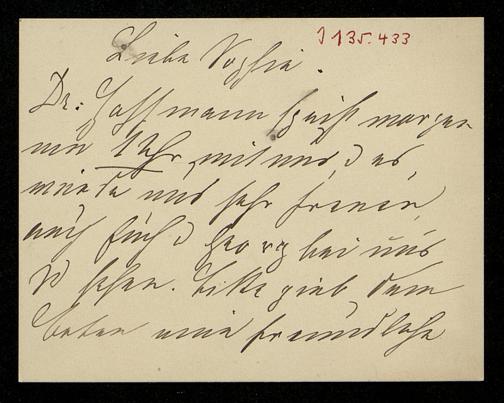 I 135.433
Liebe Sophie.
Dr. Hoffmann speist morgen
um 1 Uhr mit uns, u es
würde uns sehr freuen,
auch Euch u Georg bei uns
z sehen. Bitte gieb dem
Boten eine freundliche